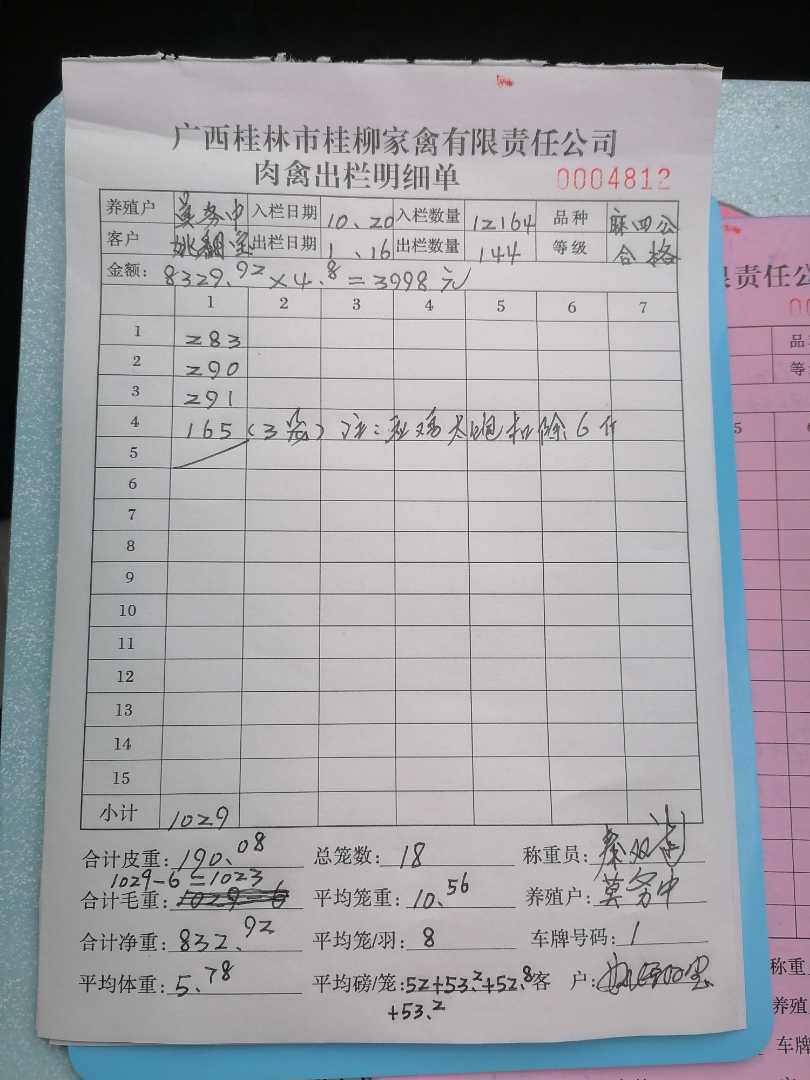 广西桂林市桂柳家禽有限责任公司
肉禽出栏明细单 0004812
养殖户 莫务中 入栏日期 10.20 入栏数量 12164 品种 麻四公
客户 姚 出栏日期 1.16 出栏数量 144 等级 合格
金额: 8329.92×4.8=3998元
1 2 3 4 5 6 7
1 283
2 290
3 291
4 165(3笼)注:鸡太饱扣除6斤
5
6
7
8
9
10
11
12
13
14
15
小计 1029
合计皮重: 190.08 总笼数: 18 称重员: 秦双
1029-6=1023
合计毛重: 1029-6 平均笼重: 10.56 养殖户: 莫务中
合计净重: 832.92 平均笼/羽: 8 车牌号码: 1
平均体重: 5.78 平均磅/笼: 52+53.2+52.8 客 户:
+53.2
责任公
00
品
等
5
称重
养殖
车牌